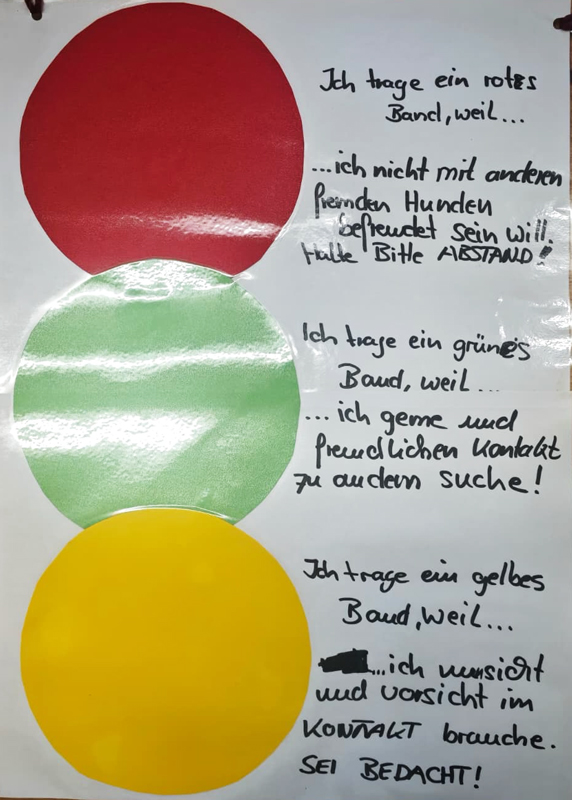 Ich trage ein rotes
Band, weil...
...ich nicht mit anderen
fremden Hunden
befreudet sein will.
Halte Bitte ABSTAND!
Ich trage ein grünes
Band, weil...
...ich gerne und
freundlichen Kontakt
zu andern suche!
Ich trage ein gelbes
Band, weil...
...ich umsicht
und vorsicht im
KONTAKT brauche.
SEI BEDACHT!